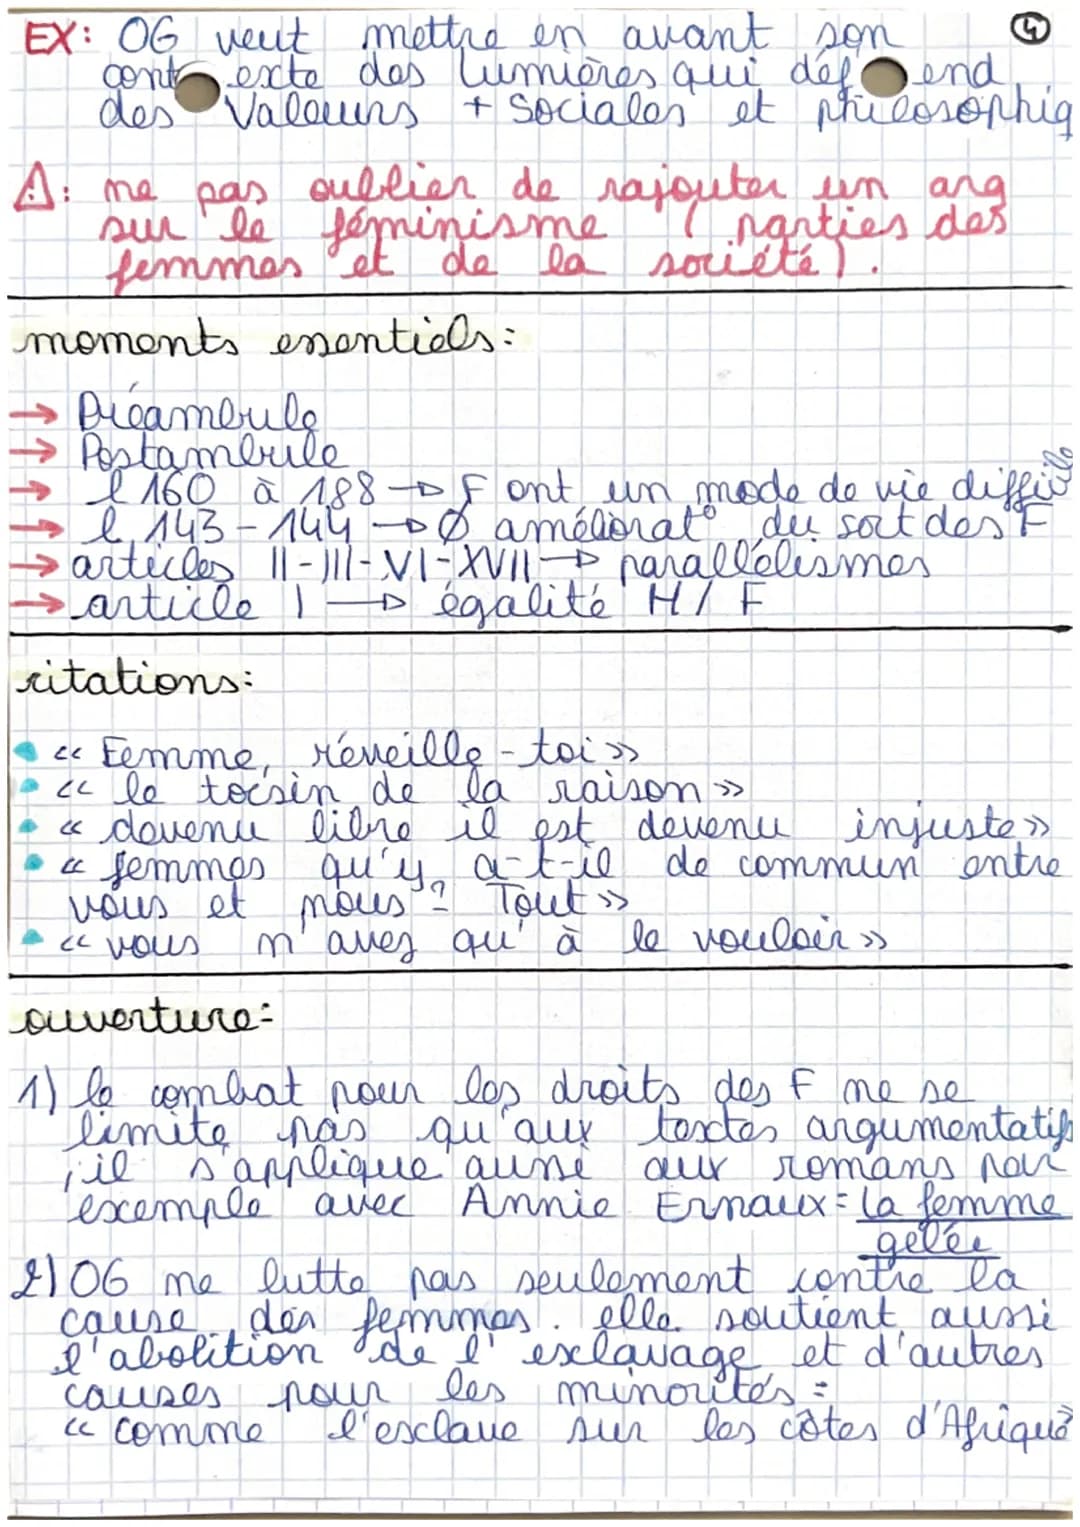 EX: OG veut mettre en avant son ④
contexte des Lumières qui défend
des Valeurs + sociales et philosophiq
⚠: ne pas oublier de rajouter un arg
sur le féminisme ( parties des
femmes et de la société ).
moments essentiels:
→ Préambule
→ Postambule
→ l 160 à 188 → F ont un mode de vie difficile
→ l 143 - 144 → Ø améliorat° du sort des F
→ articles II - III - VI - XVII → parallélismes
→ article I → égalité H / F
citations:
• « Femme, réveille-toi »
• « le tocsin de la raison »
• « devenu libre il est devenu injuste »
• « femmes qu'y a-t-il de commun entre
vous et nous ? Tout »
• « vous n'avez qu'à le vouloir »
ouverture:
1) le combat pour les droits des F ne se
limite pas qu'aux textes argumentatifs
; il s'applique aussi aux romans par
exemple avec Annie Ernaux = La femme
gelée
2) OG ne lutte pas seulement contre la
cause des femmes. elle soutient aussi
l'abolition de l'esclavage et d'autres
causes pour les minorités :
« comme l'esclave sur les côtes d'Afrique »